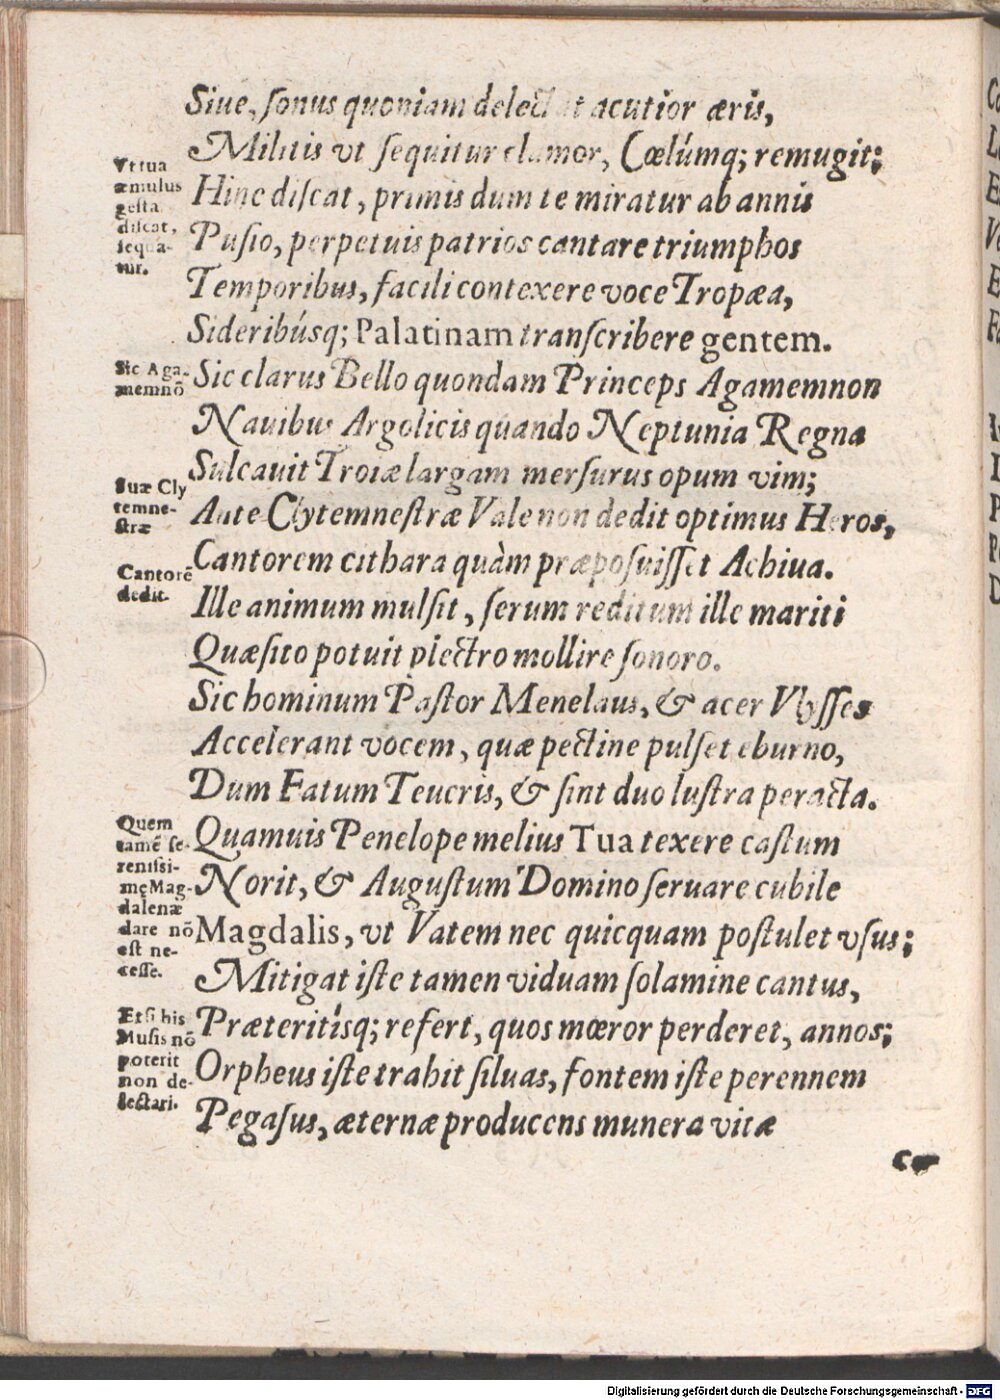 Siue, ſonus quoniam delectat acutior æris,
Militis vt ſequitur clamor, Cœlúmq; remugit;
Vt tua
æmulus
geſta
diſcat,
ſequa-
tur.
Hinc diſcat, primis dum te miratur ab annis
Puſio, perpetuis patrios cantare triumphos
Temporibus, facili contexere voce Tropæa,
Sideribúsq; Palatinam tranſcribere gentem.
Sic Aga-
memnō
Sic clarus Bello quondam Princeps Agamemnon
Nauibus Argolicis quando Neptunia Regna
Sulcauit Troiæ largam merſurus opum vim;
Suæ Cly
temne-
ſtræ
Ante Clytemneſtræ Vale non dedit optimus Heros,
Cantorē
dedit.
Cantorem cithara quàm præpoſuiſſet Achiua.
Ille animum mulſit, ſerum reditum ille mariti
Quæſito potuit plectro mollire ſonoro.
Sic hominum Paſtor Menelaus, & acer Vlyſſes
Accelerant vocem, quæ pectine pulſet eburno,
Dum Fatum Teucris, & ſint duo luſtra peracta.
Quem
tamē ſe-
reniſſi-
mę Mag-
dalenæ
dare nō
eſt ne-
ceſſe.
Quamuis Penelope melius Tua texere caſtum
Norit, & Auguſtum Domino ſeruare cubile
Magdalis, vt Vatem nec quicquam poſtulet vſus;
Mitigat iſte tamen viduam ſolamine cantus,
Etſi his
Muſis nō
poterit
non de-
lectari.
Præteritísq; refert, quos mœror perderet, annos;
Orpheus iſte trahit ſiluas, fontem iſte perennem
Pegaſus, æternæ producens munera vitæ
Digitalisierung gefördert durch die Deutsche Forschungsgemeinschaft - DFG